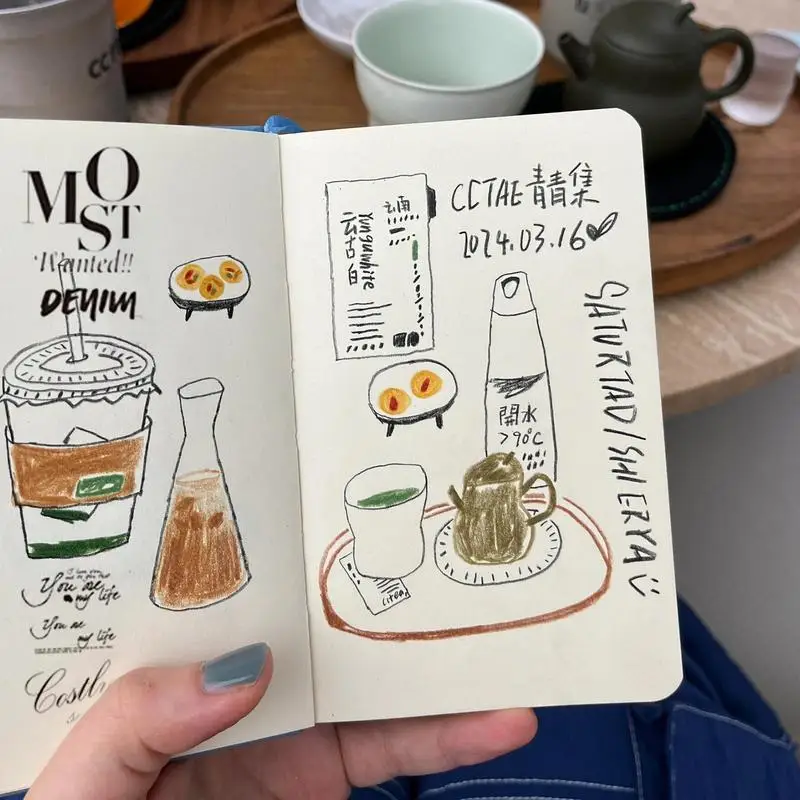 MOST
'Wanted!!
DENIM
You are
my life
You are
my life
CCTAE青青集
2024.03.16
云南
云古白
Yunguwhite
開水
>90℃
SATURTAD/SHIERYA